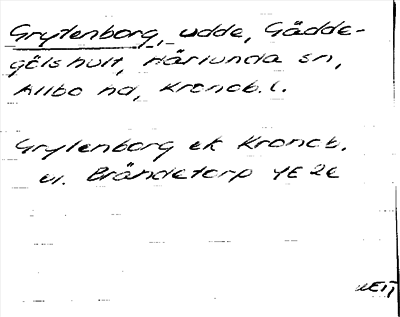 Grytenborg, udde, Gädde-
gölshult, Härlunda sn,
Allbo hd, Kronob. l.
Grytenborg ek Kronob.
vl. Brändetorp 4E 2e